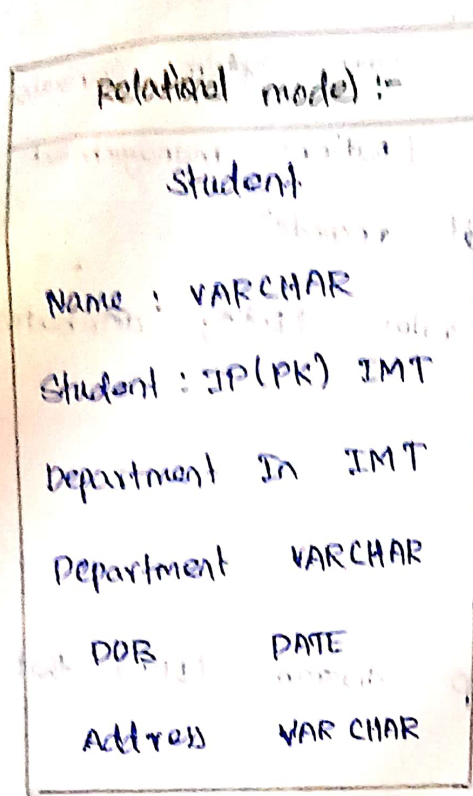 Relational model :-
Student
Name : VARCHAR
Student : ID (PK) INT
Department In INT
Department VARCHAR
DOB DATE
Address VARCHAR